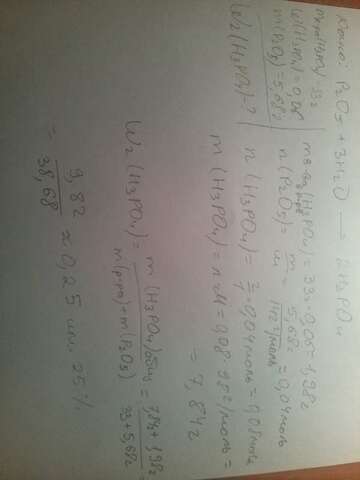 Дано: P₂O₅ + 3H₂O → 2H₃PO₄
m(P₂O₅) = 5,68г
W₂(H₃PO₄)-?
m в-ва₁(H₃PO₄) = 33г · 0,06 = 1,98г
n(P₂O₅) = m/M = 5,68г/142г/моль = 0,04моль
n(H₃PO₄) = 2/1 · 0,04моль = 0,08моль
m(H₃PO₄) = n · M = 0,08 · 98г/моль =
= 7,84г
W₂(H₃PO₄) = m(H₃PO₄)общ/m(р-ра) + m(P₂O₅) = 7,84г + 1,98г/33г + 5,68г
= 9,82/38,68 ≈ 0,25 или 25%